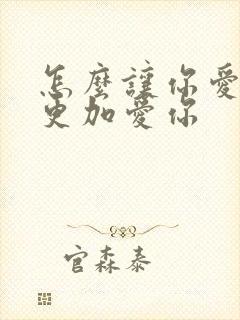 怎麼讓你愛
更加愛你
官森泰